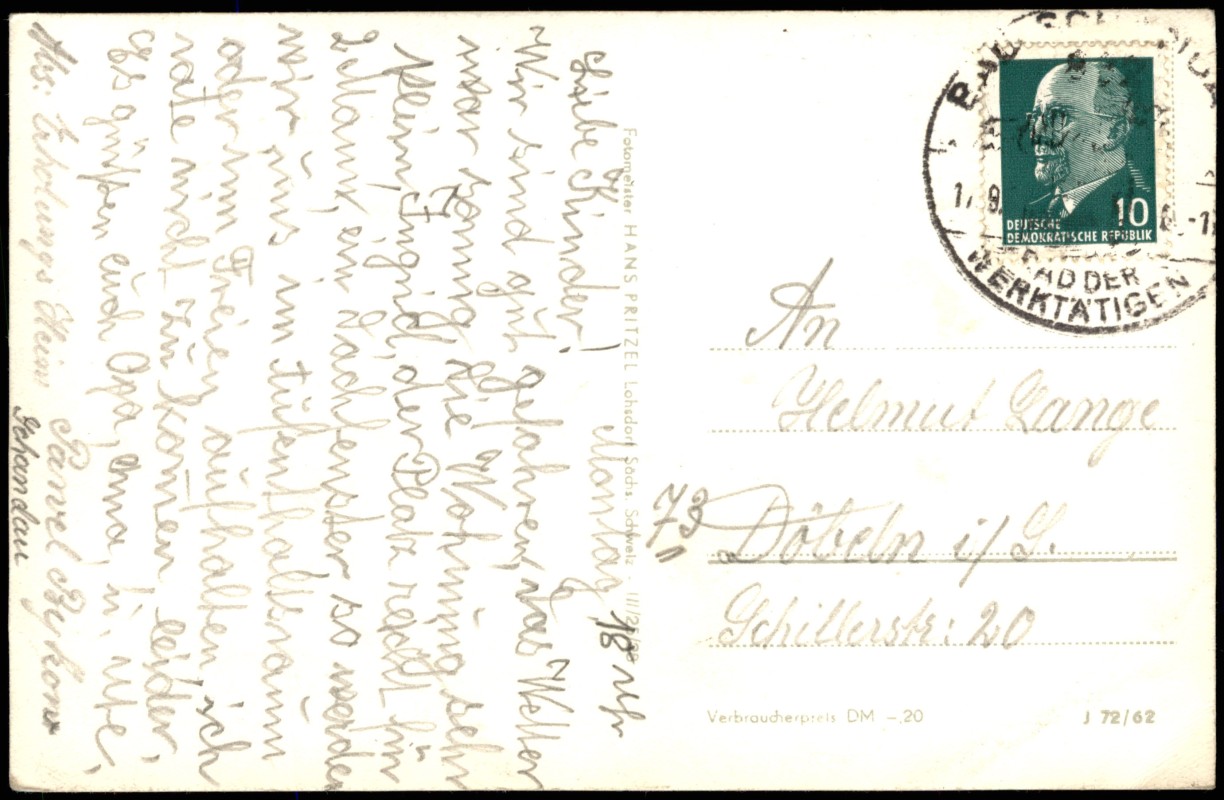 Liebe Kinder! Montag 18 Uhr
Wir sind gut gefahren, das Wetter
war sonnig die Wohnung sehr
klein, Ingrid der Platz reicht für
2 Mann, ein so werden
wir uns im aufhaltsraum
oder im Freien aufhalten, ich
rate nicht zu kommen leider,
es grüßen euch Opa, oma, u. ute,
Abs: Erholungs Heim
Schandau
Fotomeister HANS PRITZEL Lohsdorf Sächs. Schweiz
BAD SCHANDAU
BAD DER
WERKTÄTIGEN
10
DEUTSCHE
DEMOKRATISCHE REPUBLIK
An
Helmut Lange
73 Döbeln i/S.
Schillerstr: 20
Verbraucherpreis DM -,20
J 72/62